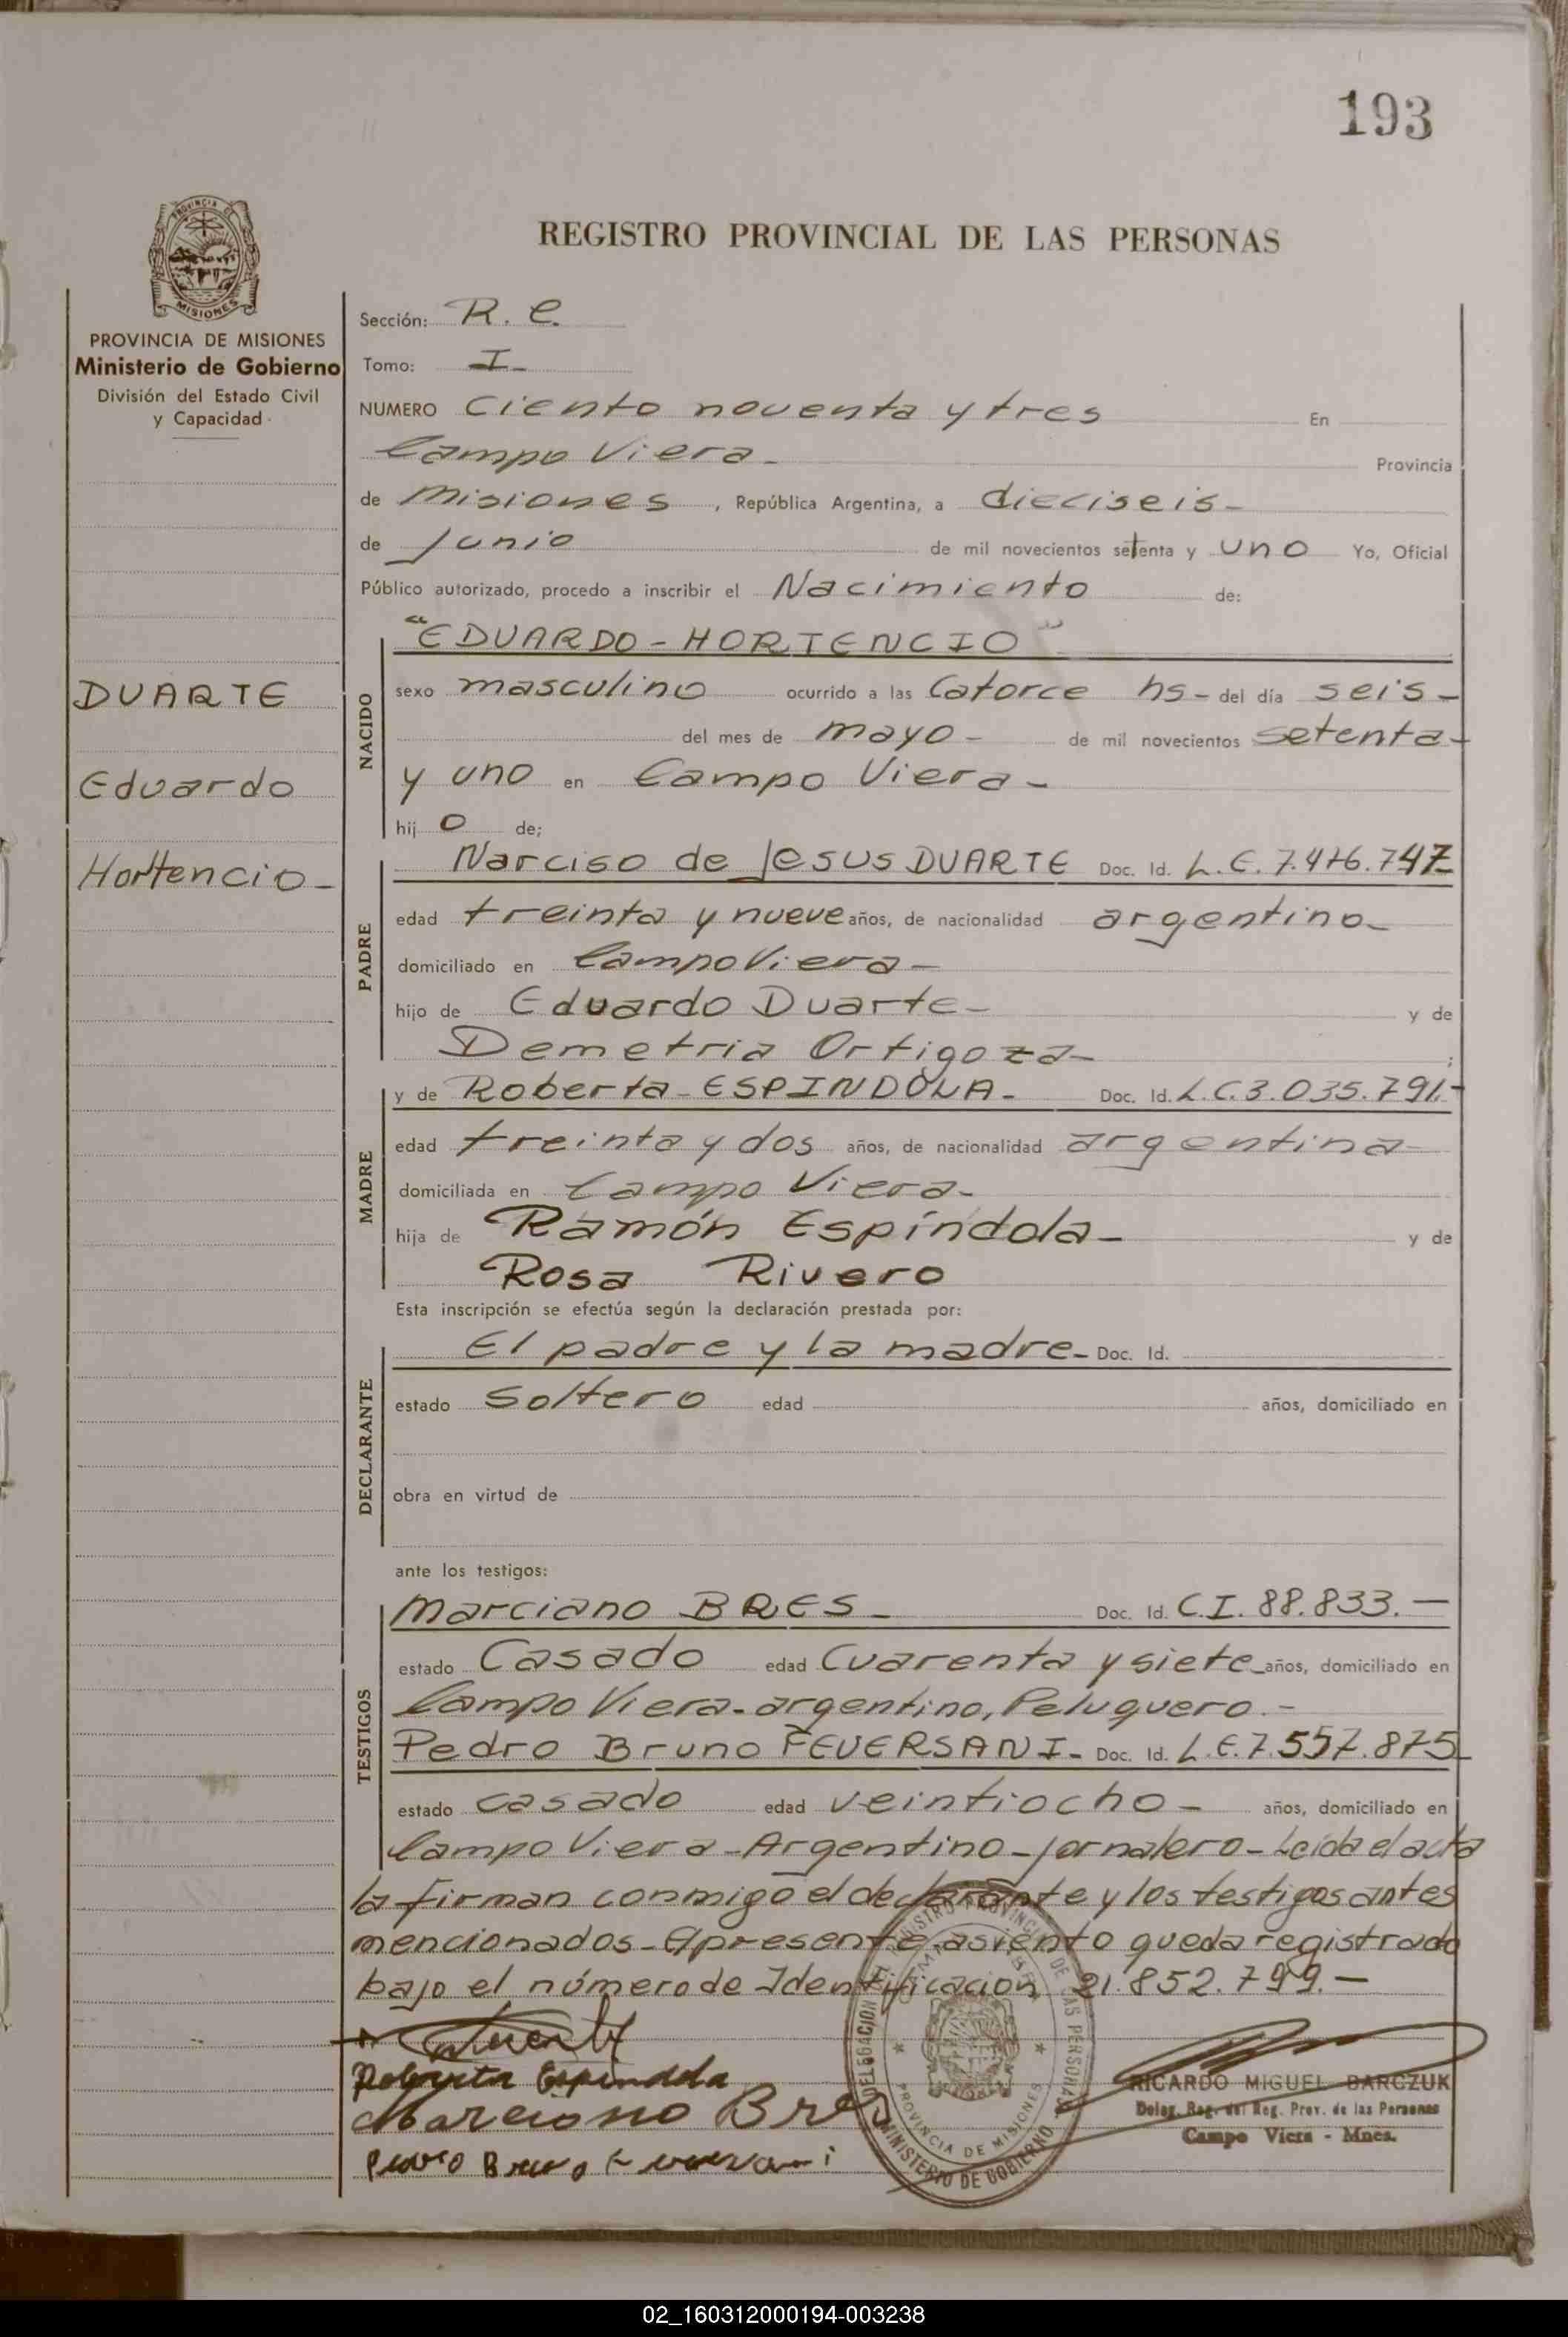 193
PROVINCIA DE MISIONES
Ministerio de Gobierno
División del Estado Civil
y Capacidad
DUARTE
Eduardo
Hortencio-
REGISTRO PROVINCIAL DE LAS PERSONAS
Sección: R. C.
Tomo: I-
NUMERO Ciento noventa y tres En
Campo Viera- Provincia
de Misiones, República Argentina, a dieciseis-
de Junio de mil novecientos setenta y uno Yo, Oficial
Público autorizado, procedo a inscribir el Nacimiento de:
NACIDO
"EDUARDO-HORTENCIO"
sexo masculino ocurrido a las Catorce hs- del día seis-
del mes de mayo- de mil novecientos setenta-
y uno en Campo Viera-
hijo de;
PADRE
Narciso de Jesus DUARTE Doc. Id. L.E. 7.476.747-
edad treinta y nueve años, de nacionalidad argentino-
domiciliado en Campo Viera-
hijo de Eduardo Duarte- y de
Demetria Ortigoza- ;
MADRE
y de Roberta-ESPINDOLA- Doc. Id. L.C.3.035.791.-
edad treinta y dos años, de nacionalidad argentina-
domiciliada en Campo Viera-
hija de Ramón Espíndola- y de
Rosa Rivero
Esta inscripción se efectúa según la declaración prestada por:
DECLARANTE
El padre y la madre- Doc. Id.
estado Soltero edad años, domiciliado en
obra en virtud de
ante los testigos:
TESTIGOS
Marciano BRES- Doc. Id. C.I. 88.833.-
estado Casado edad Cuarenta y siete- años, domiciliado en
Campo Viera-argentino, Peluquero.-
Pedro Bruno FEVERSANI- Doc. Id. L.E.7.557.875-
estado casado edad veintiocho- años, domiciliado en
Campo Viera-Argentino-jornalero-Leída el acta
la firman conmigo el declarante y los testigos antes
mencionados- presente asiento queda registrado
bajo el número de Identificación 21.852.799.-
Roberta Espindola
Marciano Bres
Pedro Bruno Feversani
DELEGACION REGISTRO PROVINCIAL DE LAS PERSONAS
MINISTERIO DE GOBIERNO
PROVINCIA DE MISIONES
RICARDO MIGUEL BARCZUK
Deleg. Reg. del Reg. Prov. de las Personas
Campo Viera - Mnes.
02_160312000194-003238